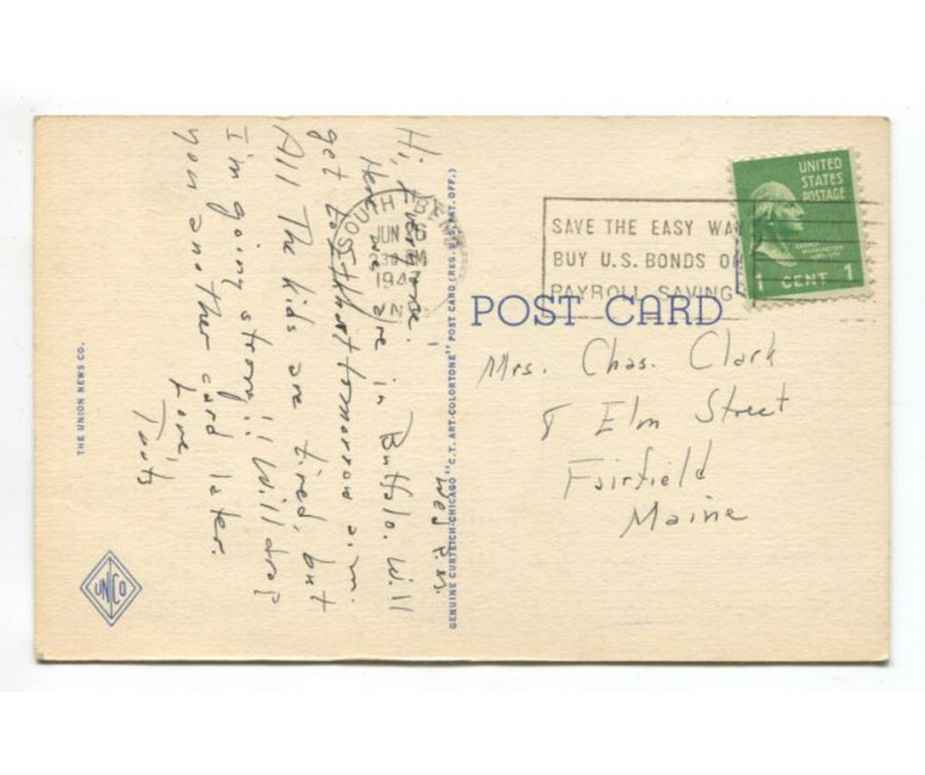 Wed. P.M.
Hi, Everyone!
Here we are in Buffalo. Will
get to tomorrow a.m.
All The kids are tired, but
I'm going strong!! Will drop
you another card later.
Love,
Toots
THE UNION NEWS CO.
UNICO
GENUINE CURTEICH-CHICAGO "C.T. ART-COLORTONE" POST CARD (REG. U.S. PAT. OFF.)
SOUTH BEND
JUN
30 PM
194
IN
SAVE THE EASY WAY
BUY U.S. BONDS ON
PAYROLL SAVING
UNITED
STATES
POSTAGE
1 CENT 1
POST CARD
Mrs. Chas. Clark
8 Elm Street
Fairfield
Maine